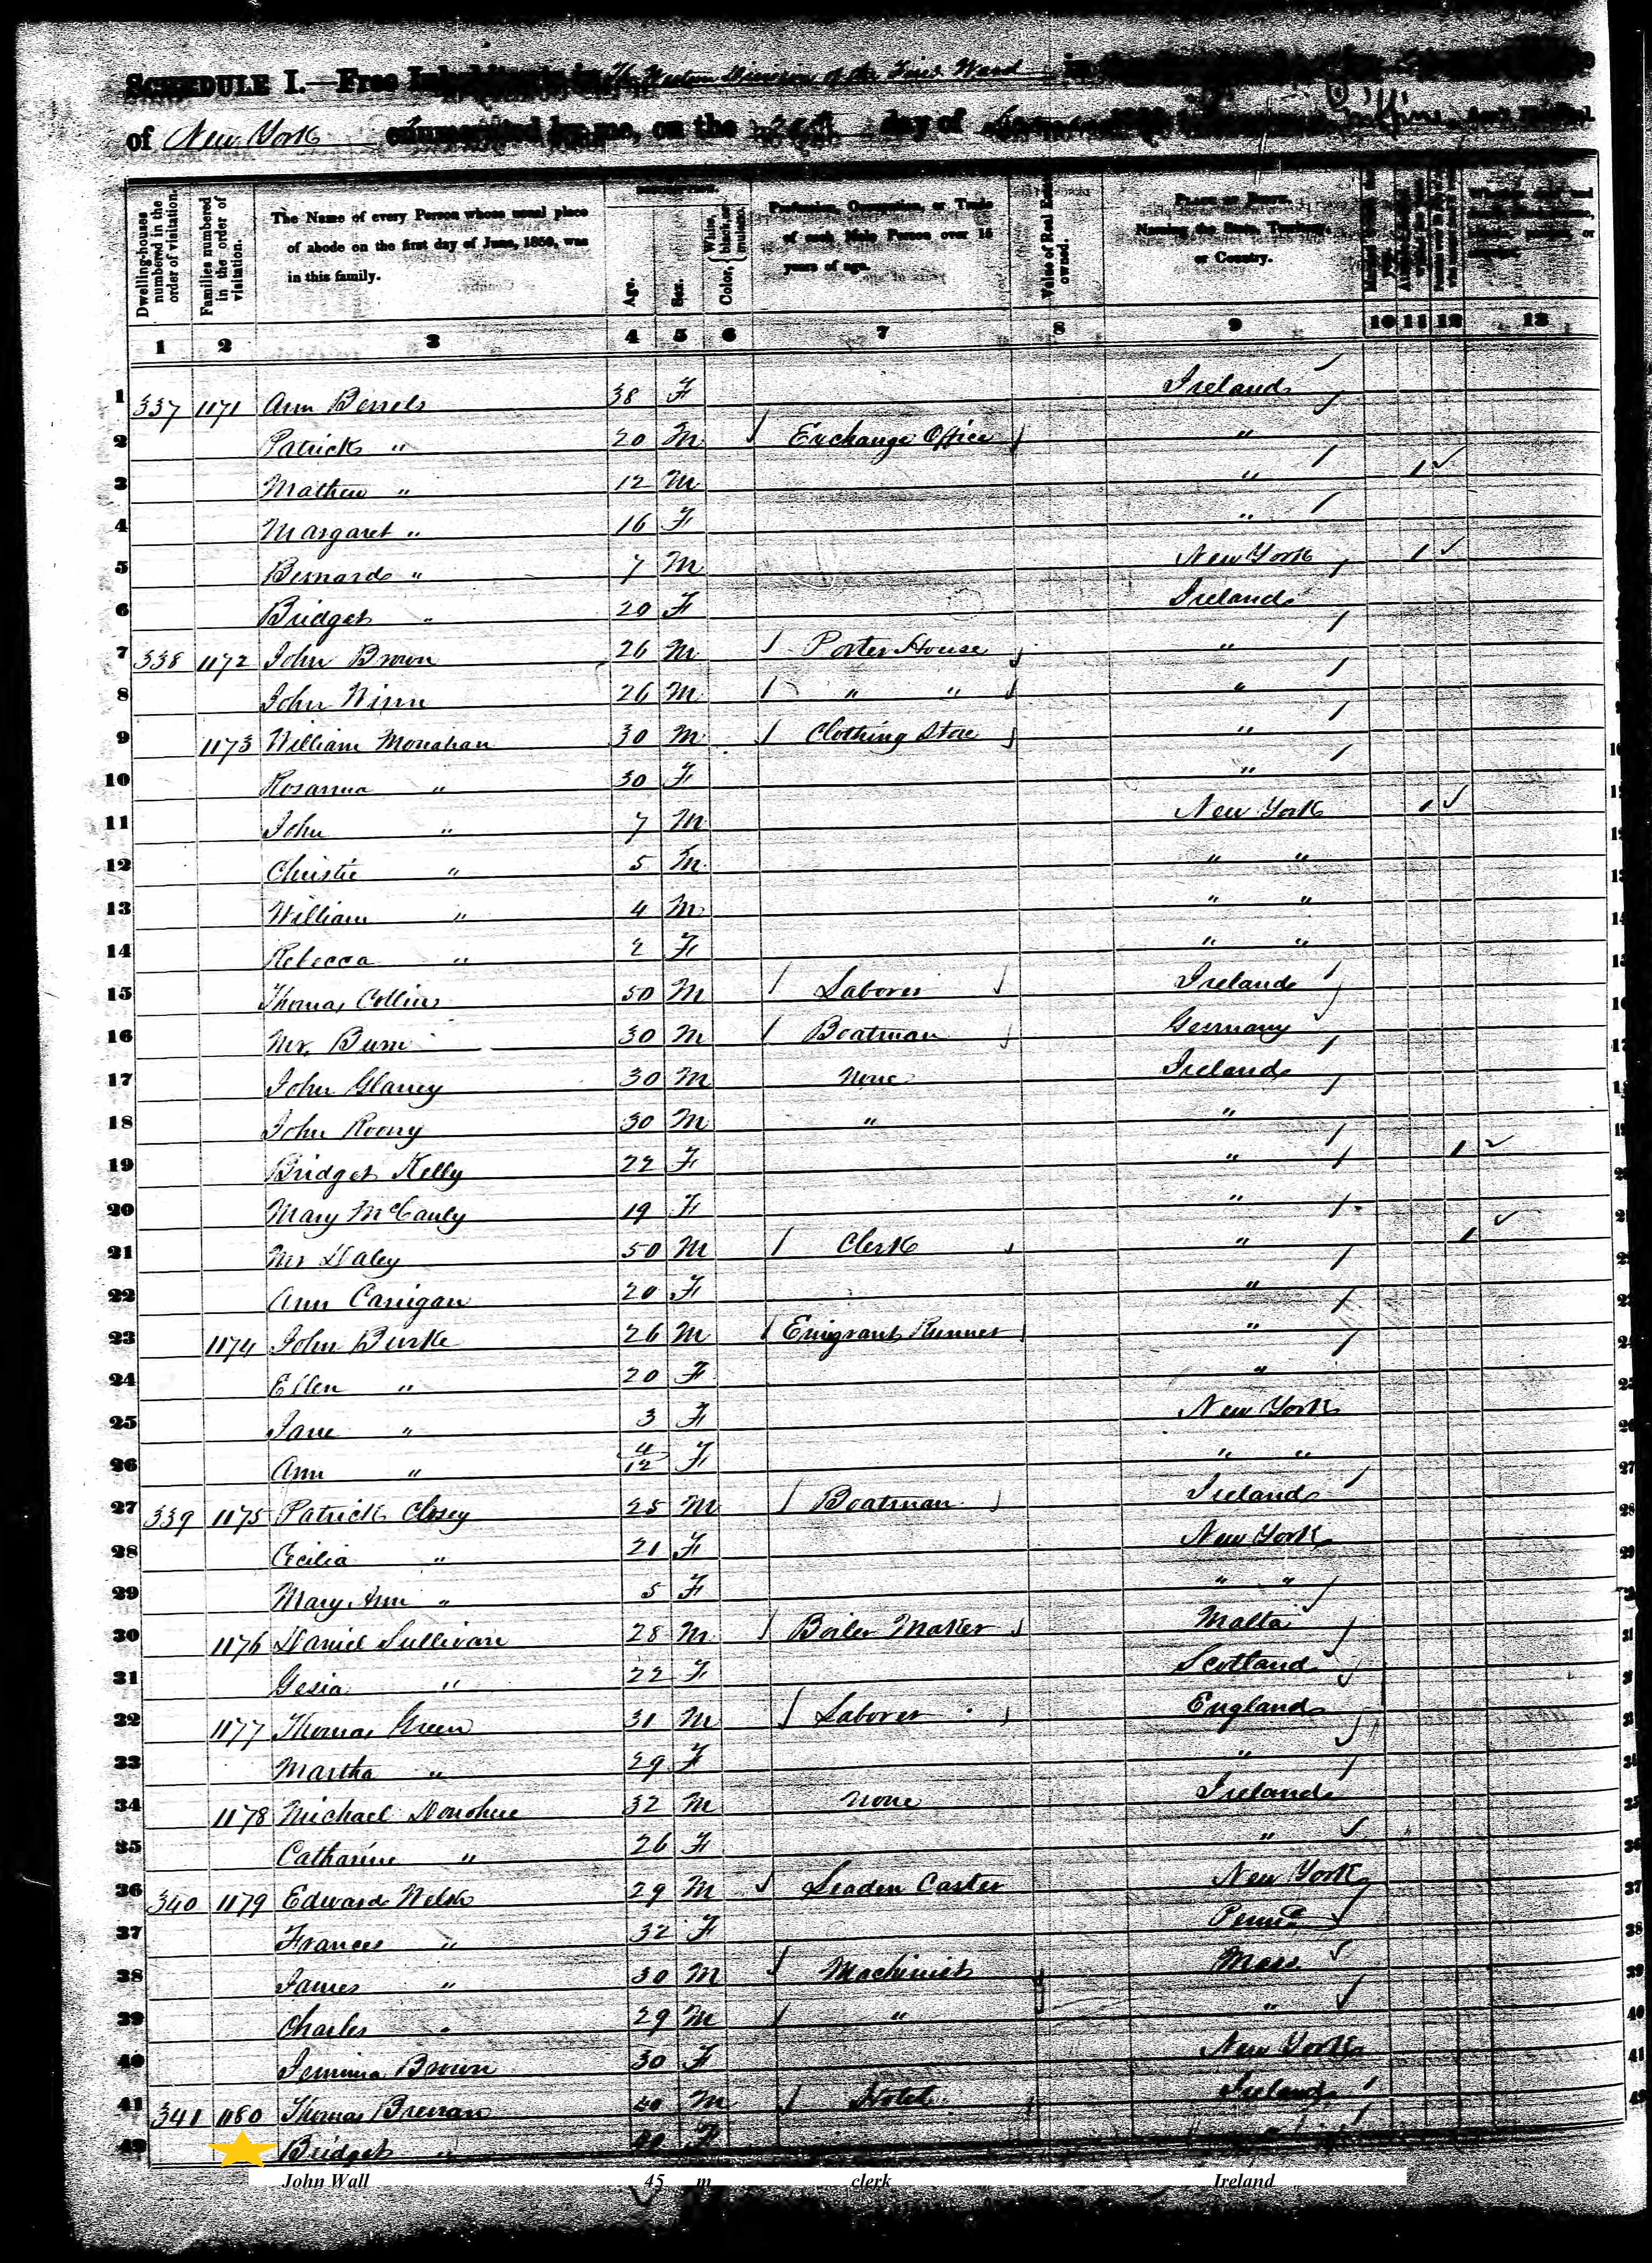 SCHEDULE I.—Free Inhabitants in The Western Division of the First Ward in
of New York enumerated by me, on the day of
Dwelling-houses numbered in the order of visitation.
Families numbered in the order of visitation.
The Name of every Person whose usual place of abode on the first day of June, 1850, was in this family.
Age.
Sex.
Color, White, black, or mulatto.
Profession, Occupation, or Trade of each Male Person over 15 years of age.
Value of Real Estate owned.
PLACE OF BIRTH. Naming the State, Territory, or Country.
1 2 3 4 5 6 7 8 9 10 11 12 13
1 337 1171 Ann Berrels 38 F Ireland
2 Patrick " 20 M Exchange Office "
3 Mathew " 12 M " 1
4 Margaret " 16 F "
5 Bernard " 7 M New York 1
6 Bridget " 20 F Ireland
7 338 1172 John Brown 26 M Porter House "
8 John Winn 26 M " " "
9 1173 William Monahan 30 M Clothing Store "
10 Rosanna " 30 F "
11 John " 7 M New York 1
12 Christie " 5 M " "
13 William " 4 M " "
14 Rebecca " 2 F " "
15 Thomas Collins 50 M Laborer Ireland
16 Mr. Burn 30 M Boatman Germany
17 John Glancy 30 M None Ireland
18 John Roony 30 M " "
19 Bridget Kelly 22 F " 1
20 Mary McCauly 19 F "
21 Mr Daley 50 M Clerk " 1
22 Ann Carrigan 20 F "
23 1174 John Burke 26 M Emigrant Runner "
24 Ellen " 20 F "
25 Jane " 3 F New York
26 Ann " 4/12 F " "
27 339 1175 Patrick Closey 25 M Boatman Ireland
28 Cecilia " 21 F New York
29 Mary Ann " 5 F " "
30 1176 Daniel Sullivan 28 M Boiler Maker Malta
31 Gesia " 22 F Scotland
32 1177 Thomas Green 31 M Laborer England
33 Martha " 29 F "
34 1178 Michael Donohue 32 M None Ireland
35 Catharine " 26 F "
36 340 1179 Edward Welsh 29 M Leaden Caster New York
37 Frances " 32 F Penna
38 James " 30 M Machinist Mass
39 Charles " 29 M " "
40 Jemima Brown 30 F New York
41 341 1180 Thomas Brenan 40 M Hotel Ireland
42 Bridget " F
John Wall 45 m clerk Ireland